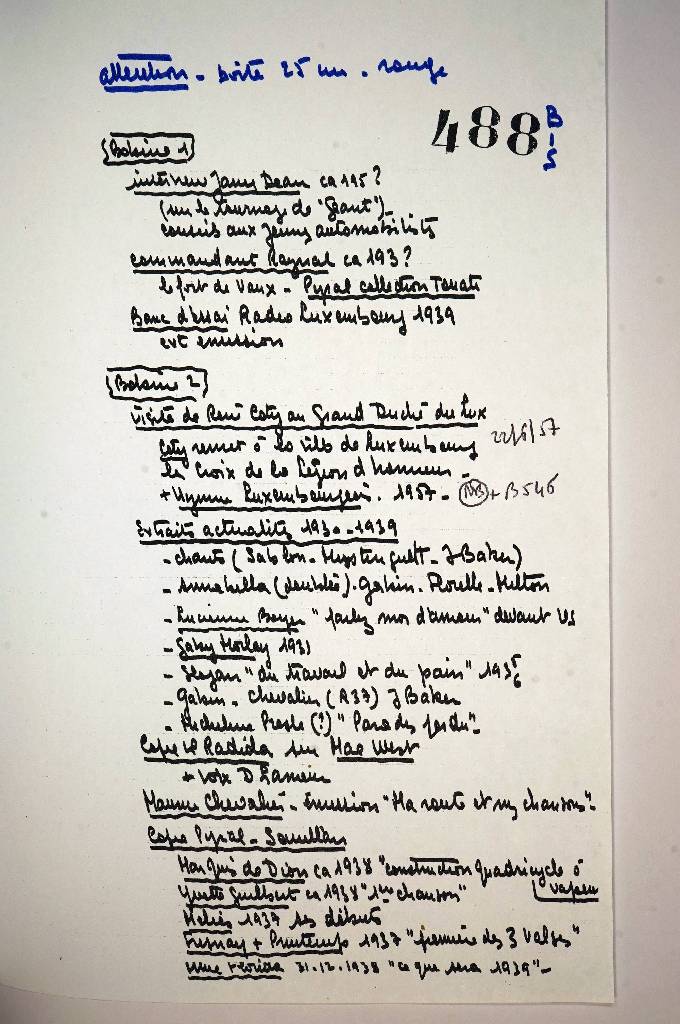 attention - boîte 25 cm - rouge
488 BIS
Bobine 1
interview James Dean ca 195?
(sur le tournage de "Géant")-
conseils aux jeunes automobilistes
commandant Raynal ca 193?
le fort de Vaux - Pyral collection
Banc d'essai Radio Luxembourg 1939
ext emission
Bobine 2
visite de René Coty au Grand Duché du Lux
Coty remet à la ville de Luxembourg 22/6/57
la Croix de la Légion d'honneur -
+ Hymne Luxembourgeois. 1957 - NB + B546
Extraits actualités 1930-1939
- chants (Sablon - Mistinguett - J Baker)
- Annabella (doublée). Gabin. Florelle - Milton
- Lucienne Boyer "parlez moi d'amour" devant
- Gaby Morlay 1931
- Slogan "du travail et du pain" 1935 6
- Gabin - Chevalier (A37) J Baker
- Micheline Presle (?) "Paradis perdu" -
Copie Radiola sur Mae West
+ voix D Lamour
Maurice Chevalier - Emission "Ma route et mes chansons" -
Copie Pyral -
Marquis de Dion ca 1938 "construction quadricycle à vapeur
Yvette Guilbert ca 1938 "1ère chanson"
Méliès 1937 ses débuts
Fresnay + Printemps 1937 "première des 3 Valses"
Mme 31.12.1938 "ce que sera 1939" -